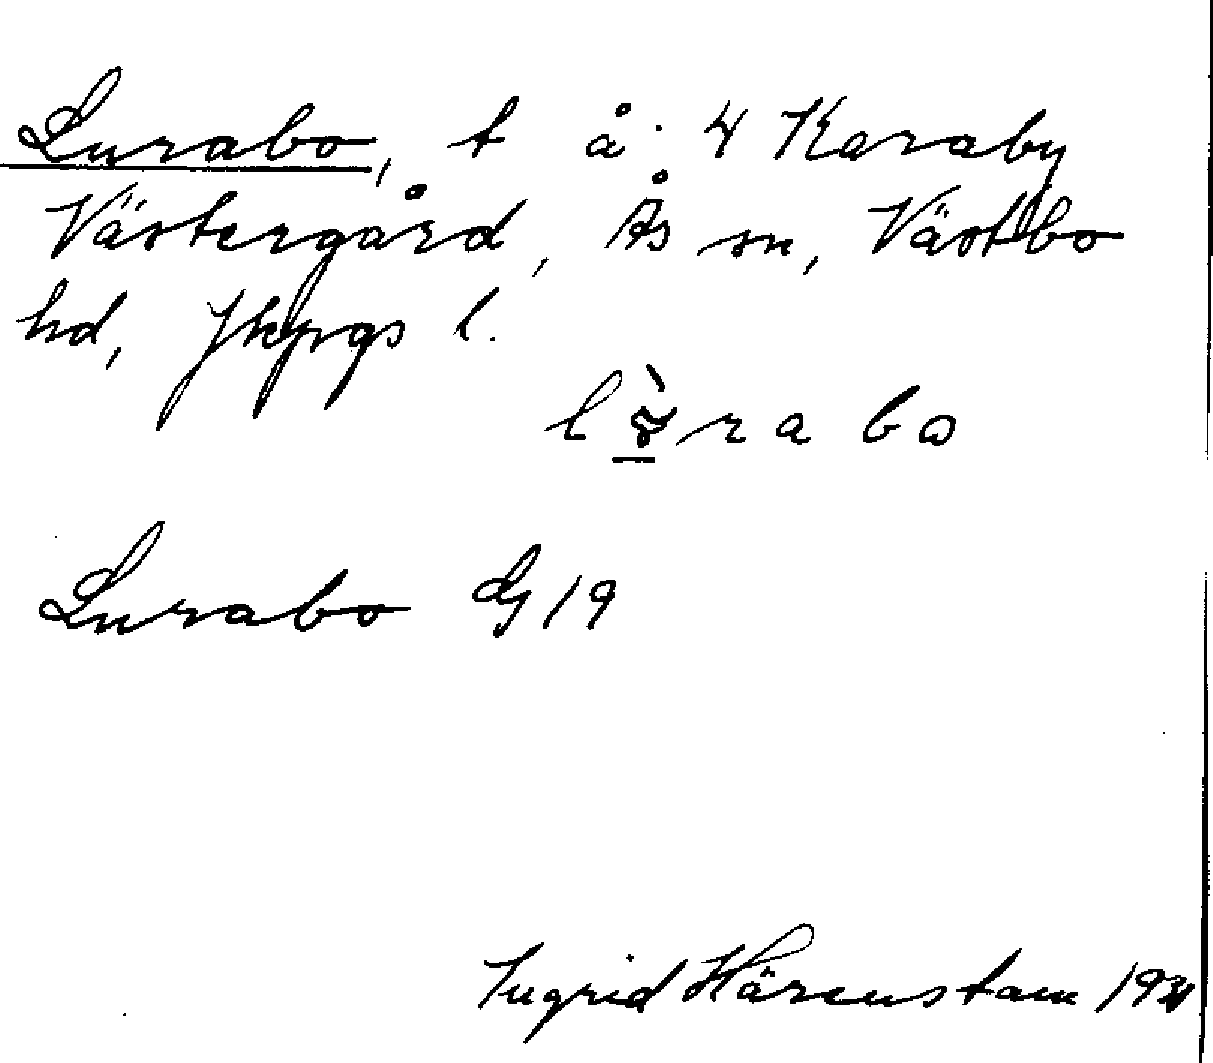 Lurabo, t å. 4 Karaby
Västergård, Ås sn, Västbo
hd, Jkpgs l.
rabo
Lurabo G 19
Ingrid Härenstam